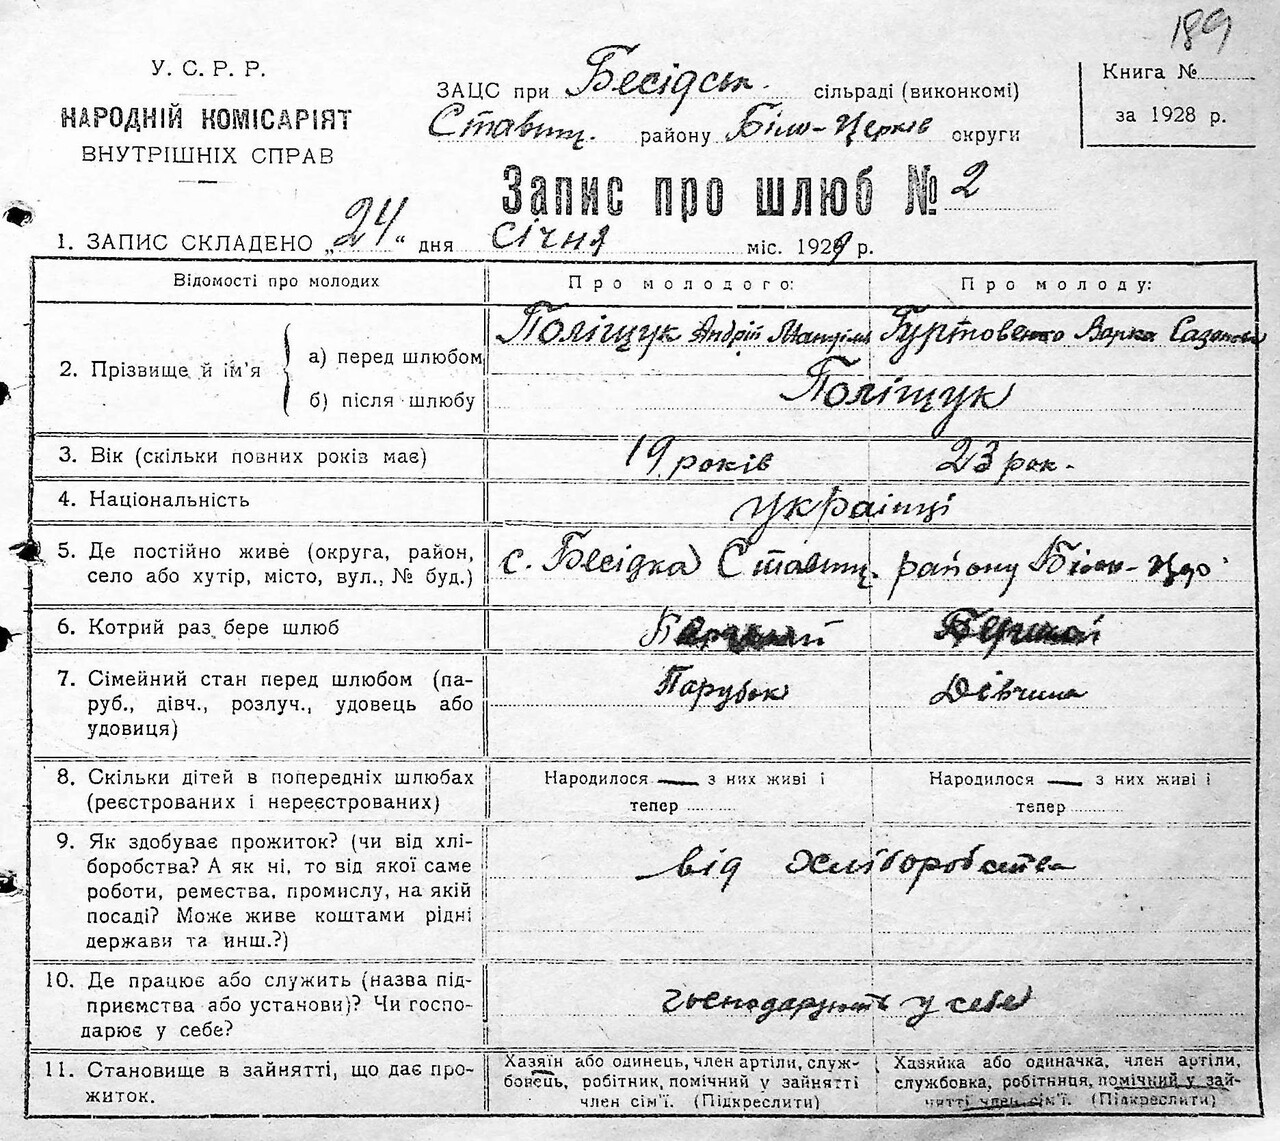 189
У. С. Р. Р.
НАРОДНІЙ КОМІСАРІЯТ
ВНУТРІШНІХ СПРАВ
ЗАЦС при Бесідськ. сільраді (виконкомі)
Ставищ. району Біло-Церків округи
Книга №
за 1928 р.
Запис про шлюб № 2
1. ЗАПИС СКЛАДЕНО „24“ дня січня міс. 1929 р.
Відомості про молодих
Про молодого:
Про молоду:
2. Прізвище й ім'я
а) перед шлюбом
Поліщук Андрій
Гуртовенко Варка
б) після шлюбу
Поліщук
3. Вік (скільки повних років має)
19 років
23 рок.
4. Національність
українці
5. Де постійно живе (округа, район,
село або хутір, місто, вул., № буд.)
с. Бесідка Ставищ. району Біло-Цер
6. Котрий раз бере шлюб
7. Сімейний стан перед шлюбом (па-
руб., дівч., розлуч., удовець або
удовиця)
Парубок
Дівчина
8. Скільки дітей в попередніх шлюбах
(реєстрованих і нереєстрованих)
Народилося — з них живі і
тепер
Народилося — з них живі і
тепер
9. Як здобуває прожиток? (чи від хлі-
боробства? А як ні, то від якої саме
роботи, ремества, промислу, на якій
посаді? Може живе коштами рідні
держави та инш.?)
від хліборобства
10. Де працює або служить (назва під-
приємства або установи)? Чи госпо-
дарює у себе?
господарують у себе
11. Становище в зайнятті, що дає про-
житок.
Хазяїн або одинець, член артіли, служ-
бовець, робітник, помічний у зайнятті
член сім'ї. (Підкреслити)
Хазяйка або одиначка, член артіли,
службовка, робітниця, помічний у зай-
нятті член сім'ї. (Підкреслити)